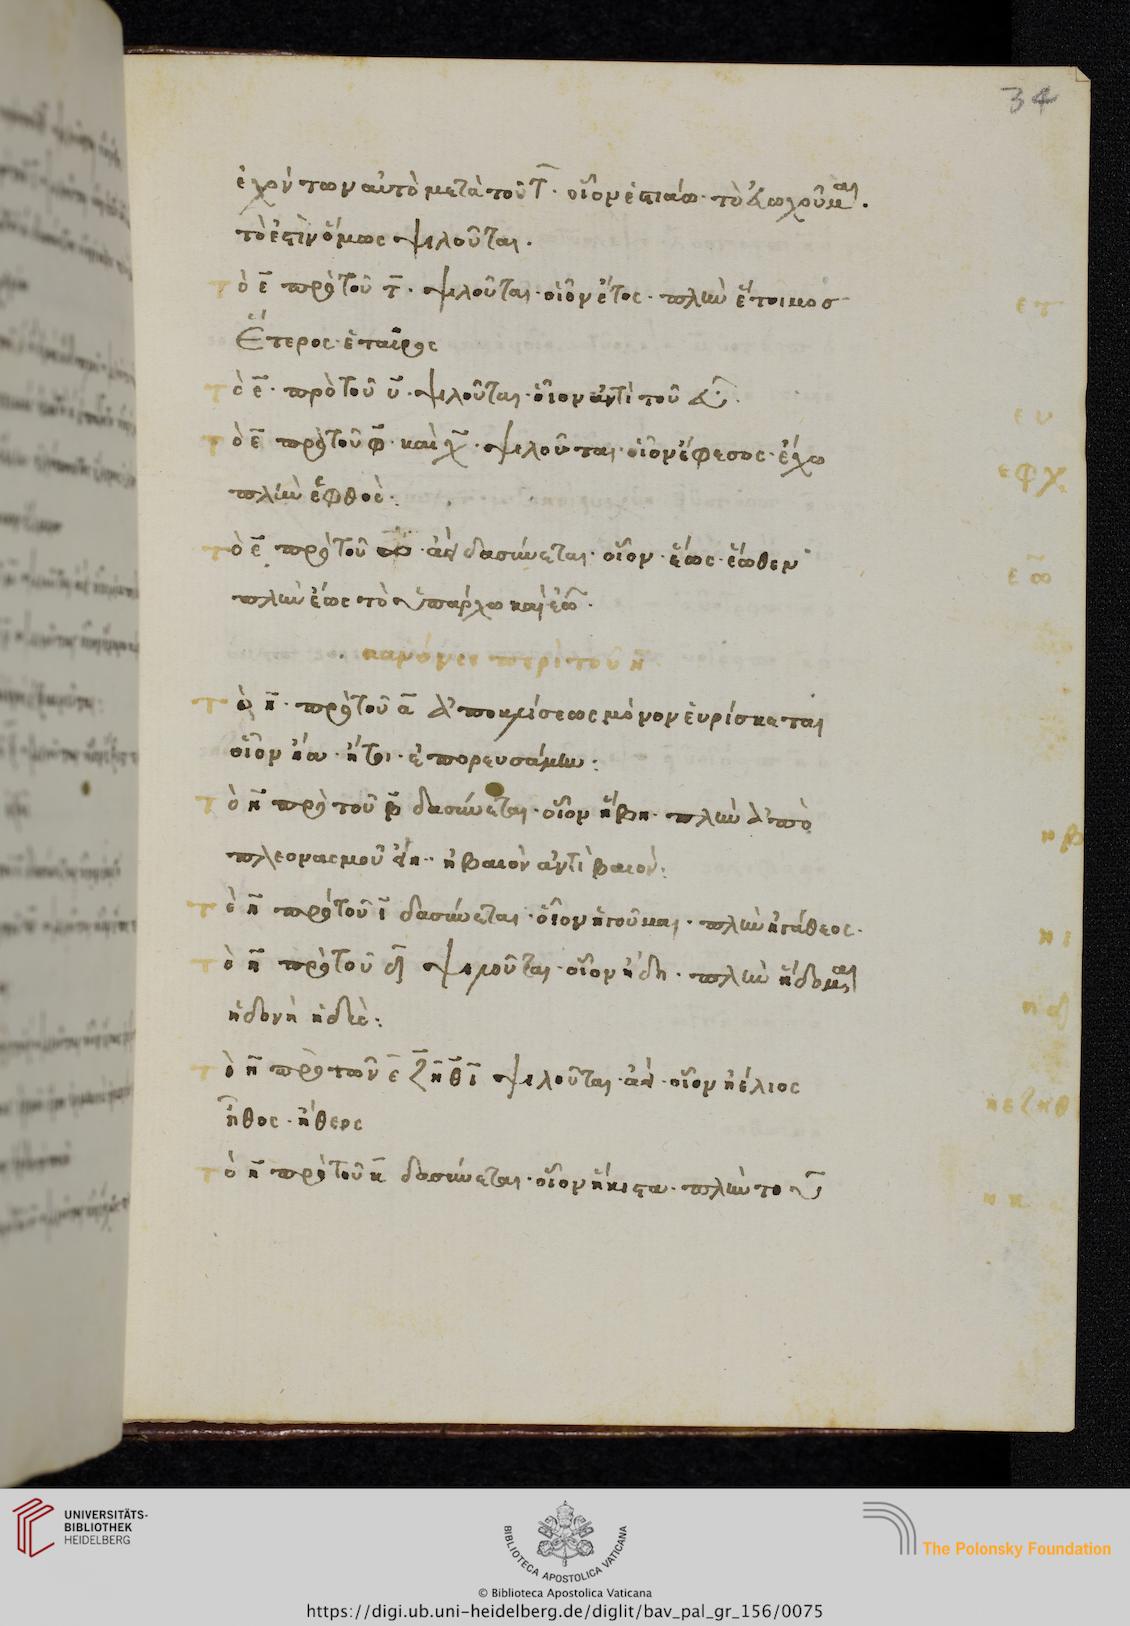 34
ἐχόντων αὐτὸ μετὰ τοῦ τ̄· οἷον ἑστιάω· τὸ εὐωχοῦμαι.
τὸ ἐστὶν ὅμως ψιλοῦται.
Τὸ ε̄ πρὸ τοῦ τ̄· ψιλοῦται· οἷον ἔτος· πλὴν ἕτοιμοσ
ἕτερος· ἑταῖρος
Τὸ ε̄· πρὸ τοῦ ῡ· ψιλοῦται· οἷον
Τὸ ε̄ πρὸ τοῦ φ̄· καὶ χ̄· ψιλοῦται· οἷον ἔφεσος· ἔχω
πλὴν ἑφθός:
Τὸ ε̄ πρὸ τοῦ ω̄· ἀεὶ δασύνεται· οἷον· ἕως· ἕωθεν
πλὴν ἐῶ τὸ ὑπάρχω καὶ ἐῶ.
κανόνες περὶ τοῦ η̄
Τὸ η̄· πρὸ τοῦ ᾱ ἀποκρίσεως μόνον εὑρίσκεται
οἷον ἤα· ἤτοι· ἐπορευσάμην:
Τὸ η̄ πρὸ τοῦ β̄ δασύνεται· οἷον ἥβη· πλὴν ἀπὸ
πλεονασμοῦ εἴη· ἠβαιὸν ἀντὶ βαιόν:
Τὸ η̄ πρὸ τοῦ γ̄ δασύνεται· οἷον ἡγοῦμαι· πλὴν ἠγάθεος.
Τὸ η̄ πρὸ τοῦ δ̄ ψιλοῦται· οἷον ἤδη· πλὴν ἥδομαι
ἡδονὴ ἡδύς:
Τὸ η̄ πρὸ τῶν ε̄ ζ̄ η̄ θ̄ ῑ ψιλοῦται· ἀεὶ· οἷον ἠέλιος
ἦθος· ἤθερς
Τὸ η̄ πρὸ τοῦ κ̄ δασύνεται· οἷον ἥκιστα· πλὴν το
ε τ
ε υ
ε φ χ
ε ω
η β
η γ
η δ
η ε ζ η θ
η κ
UNIVERSITÄTS-
BIBLIOTHEK
HEIDELBERG
BIBLIOTECA APOSTOLICA VATICANA
The Polonsky Foundation
© Biblioteca Apostolica Vaticana
https://digi.ub.uni-heidelberg.de/diglit/bav_pal_gr_156/0075